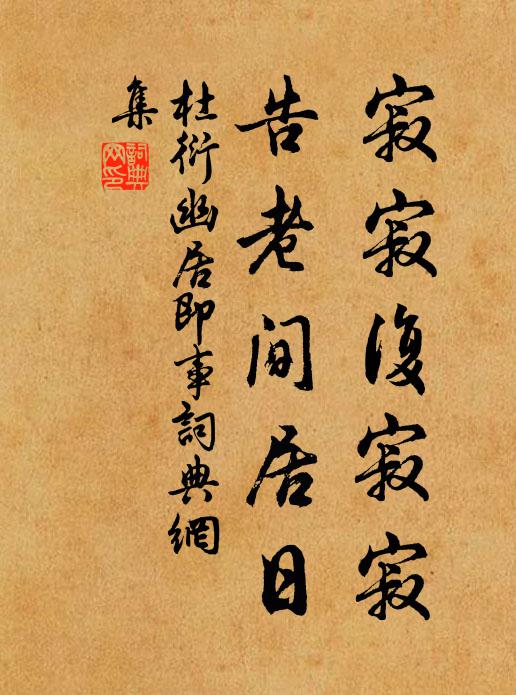 寂寂復寂寂
告老間居日
杜衍幽居即事詞典網
集
詞典
网印